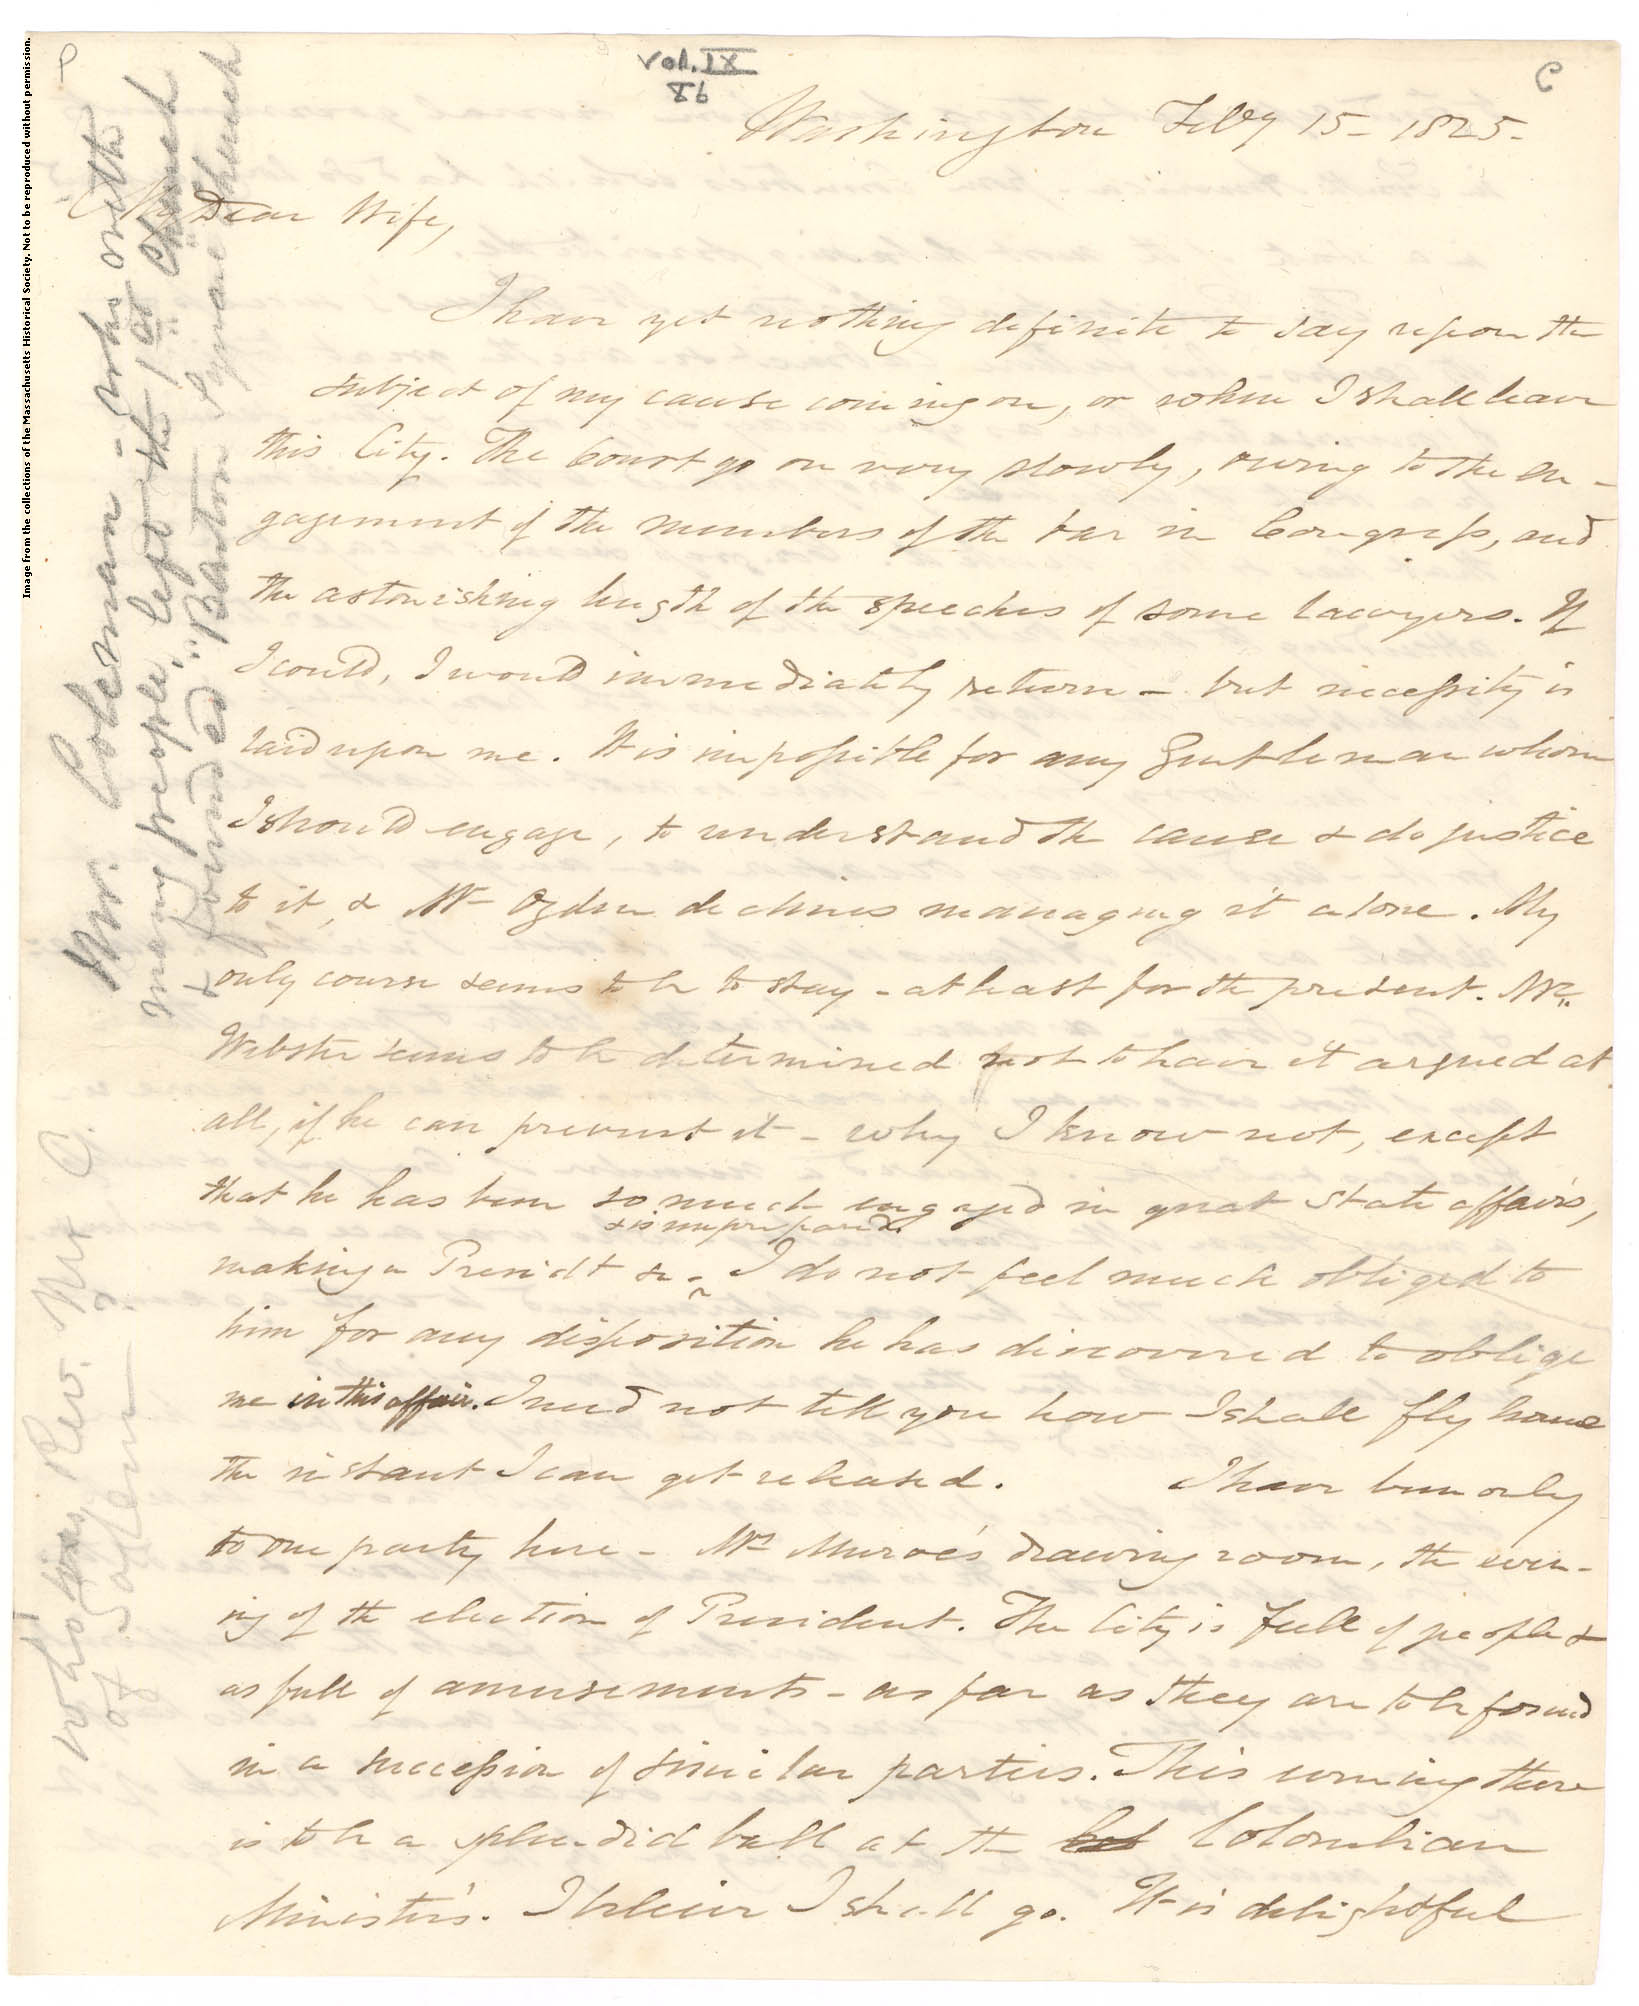 Image from the collections of the Massachusetts Historical Society. Not to be reproduced without permission.
P
Vol. IX
86
C
Washington Feby 15 - 1825 -
My Dear Wife,
I have yet nothing definite to say upon the
subject of my cause coming on, or when I shall leave
this City. The Court go on very slowly, owing to the en-
gagement of the members of the bar in Congress, and
the astonishing length of the speeches of some Lawyers. If
I could, I would immediately return - but necessity is
laid upon me. It is impossible for any Gentleman whom
I should engage, to understand the cause & do justice
to it, & Mr Ogden declines managing it alone. My
only course seems to be to stay - at least for the present. Mr
Webster seems to be determined not to have it argued at
all, if he can prevent it - why I know not, except
that he has been so much engaged in great State affairs,
& is unprepared.
making a Presidt &c - I do not feel much obliged to
him for any disposition he has discovered to oblige
me in this affair. I need not tell you how I shall fly home
the instant I can get released. I have been only
to one party here - Mrs Munroe's drawing room, the even-
ing of the election of President. The City is full of people &
as full of amusements - as far as they are to be found
in a succession of similar parties. This evening there
is to be a splendid ball at the Colombian
Minister's. I believe I shall go. It is delightful
Mr. Coleman - who with
many people, left the "1st Church"
& founded "Barton Square Church"
who was Rev. Mr C.
of Salem?